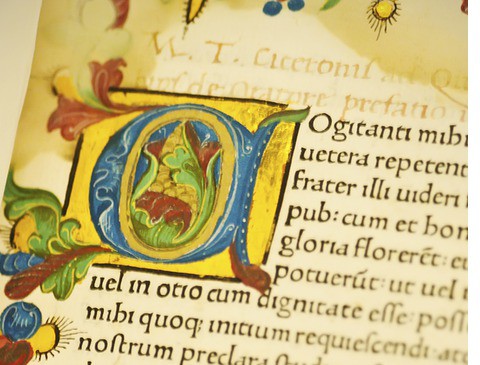 M. T. Ciceronis ad Qu
de Oratore prefatio
Ogitanti mihi
uetera repetent
frater illi uideri
pub: cum et bon
gloria florerēt: e
potuerūt: ut uel i
uel in otio cum dignitate eſſe: poſſ
mihi quoq; initium requieſcendi
noſtrum preclara